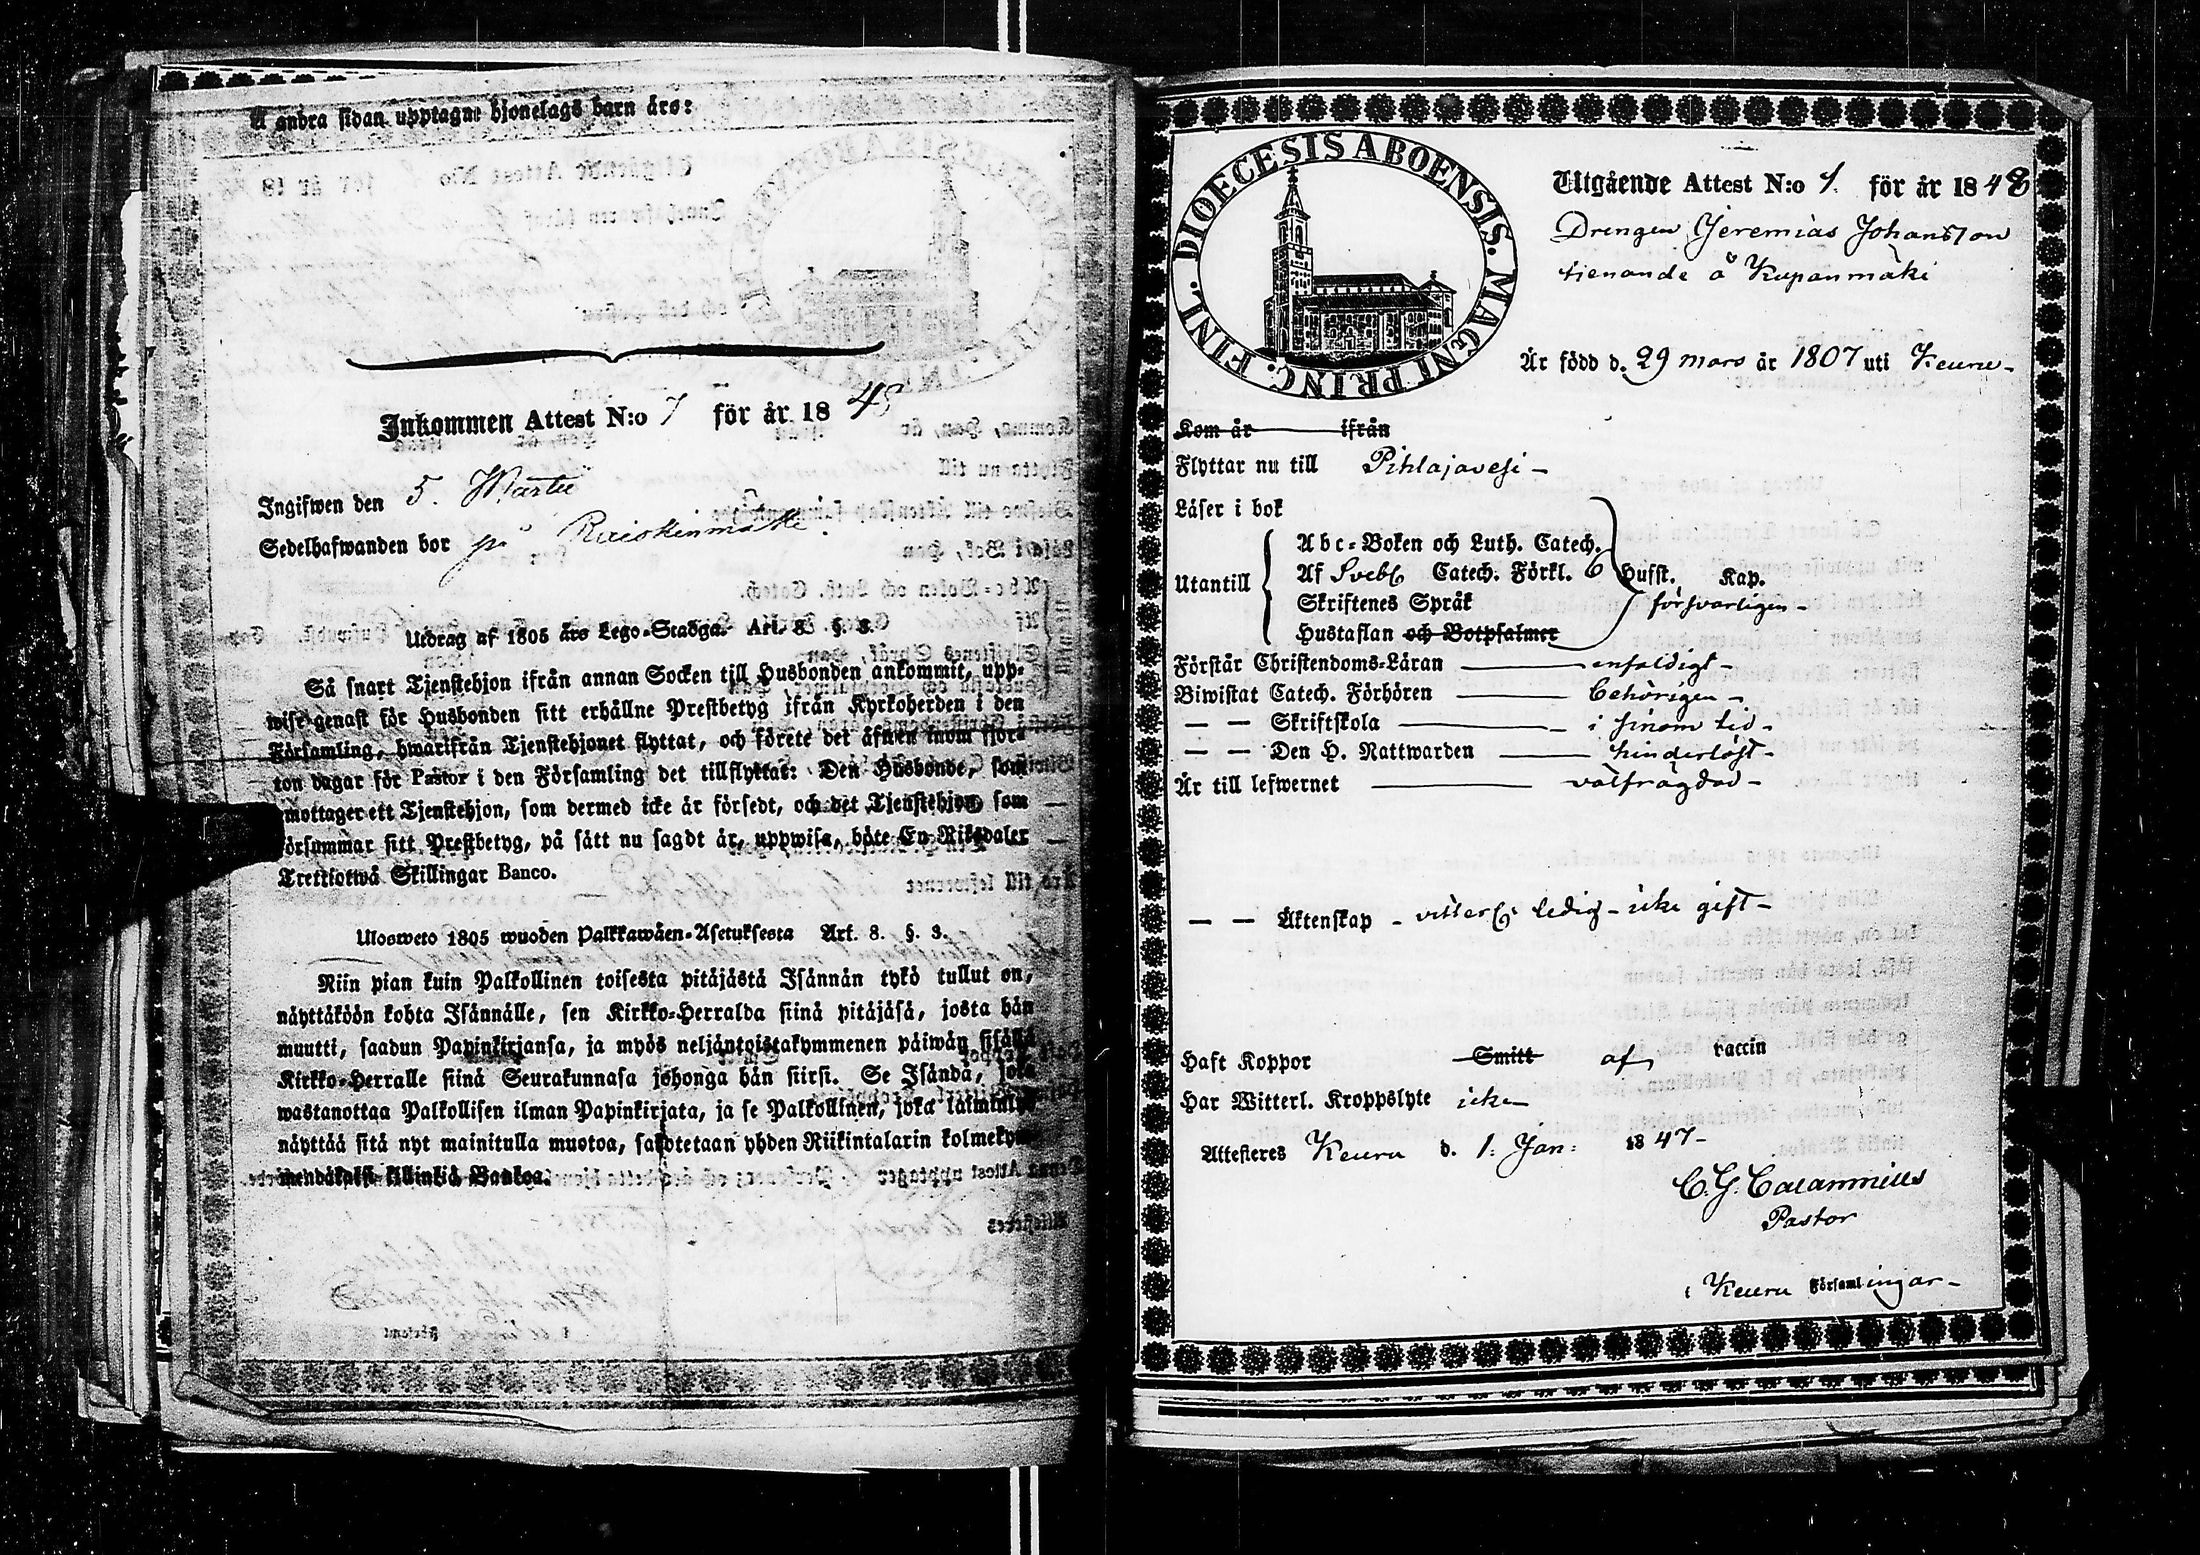 Å andra sidan upptagne hjonelags barn äro:
Inkommen Attest N:o 7 för år 1848
Ingifwen den 5. Martii
Sedelhafwanden bor på
Utdrag af 1805 års Lego-Stadga. Art. 8. §. 3.
Så snart Tjenstehjon ifrån annan Socken till Husbonden ankommit, upp-
wise genast för Husbonden sitt erhållne Prestbetyg ifrån Kyrkoherden i den
Församling, hwarifrån Tjenstehjonet flyttat, och förete det äfwen inom fjor-
ton dagar för Pastor i den Församling det tillflyttat: Den Husbonde, som
emottager ett Tjenstehjon, som dermed icke är försedt, och det Tjenstehjon, som
försummar sitt Prestbetyg, på sätt nu sagdt är, uppwisa, böte En Riksdaler
Trettiotwå Skillingar Banco.
Ulosweto 1805 wuoden Palkkawäen-Asetuksesta Art. 8. §. 3.
Niin pian kuin Palkollinen toisesta pitäjästä Isännän tykö tullut on,
näyttäköön kohta Isännälle, sen Kirkko-Herralda siinä pitäjäsä, josta hän
muutti, saadun Papinkirjansa, ja myös neljäntoistakymmenen päiwän sisällä
Kirkko-Herralle siinä Seurakunnasa johonga hän siirsi. Se Isändä, joka
wastanottaa Palkollisen ilman Papinkirjata, ja se Palkollinen, joka laiminlyö
näyttää sitä nyt mainitulla muotoa, sakotetaan yhden Riikintalarin kolmekym-
mendäkaksi killinkiä Bankoa.
DIOECESIS ABOENSIS. MAGNI PRINC. FINL.
Utgående Attest N:o 1. för år 1848
Drengen Jeremias Johansson
tienande å Kupanmäki
Är född d. 29 mars år 1807 uti Keuru-
Kom år ifrån
Flyttar nu till Pihlajavesi-
Läser i bok
Abc-Boken och Luth. Catech.
Utantill Af Sveb Catech. Förkl. 6 Hufst. Kap.
Skriftenes Språk försvarligen-
Hustaflan och Botpsalmer
Förstår Christendoms-Läran enfaldigt-
Biwistat Catech. Förhören behörigen-
— — Skriftskola i sinom tid-
— — Den H. Nattwarden hinderlöst-
Är till lefwernet välfrägdad-
— — Äktenskap - ledig - icke gift-
Haft Koppor Smitt af vaccin
Har Witterl. Kroppslyte icke
Attesteres Keuru d. 1. Jan: 1847-
C. G. Calamnius
Pastor
i Keuru Församlingar-